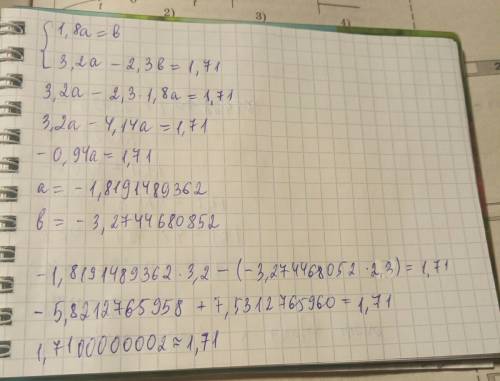 2) 3) 4)
{ 1,8a = b
3,2a - 2,3b = 1,71
3,2a - 2,3·1,8a = 1,71
3,2a - 4,14a = 1,71
- 0,94a = 1,71
a = - 1,8191489362
b = - 3,2744680852
-1,8191489362·3,2 - (-3,274468052·2,3) = 1,71
- 5,8212765958 + 7,5312765960 = 1,71
1,7100000002 ≈ 1,71